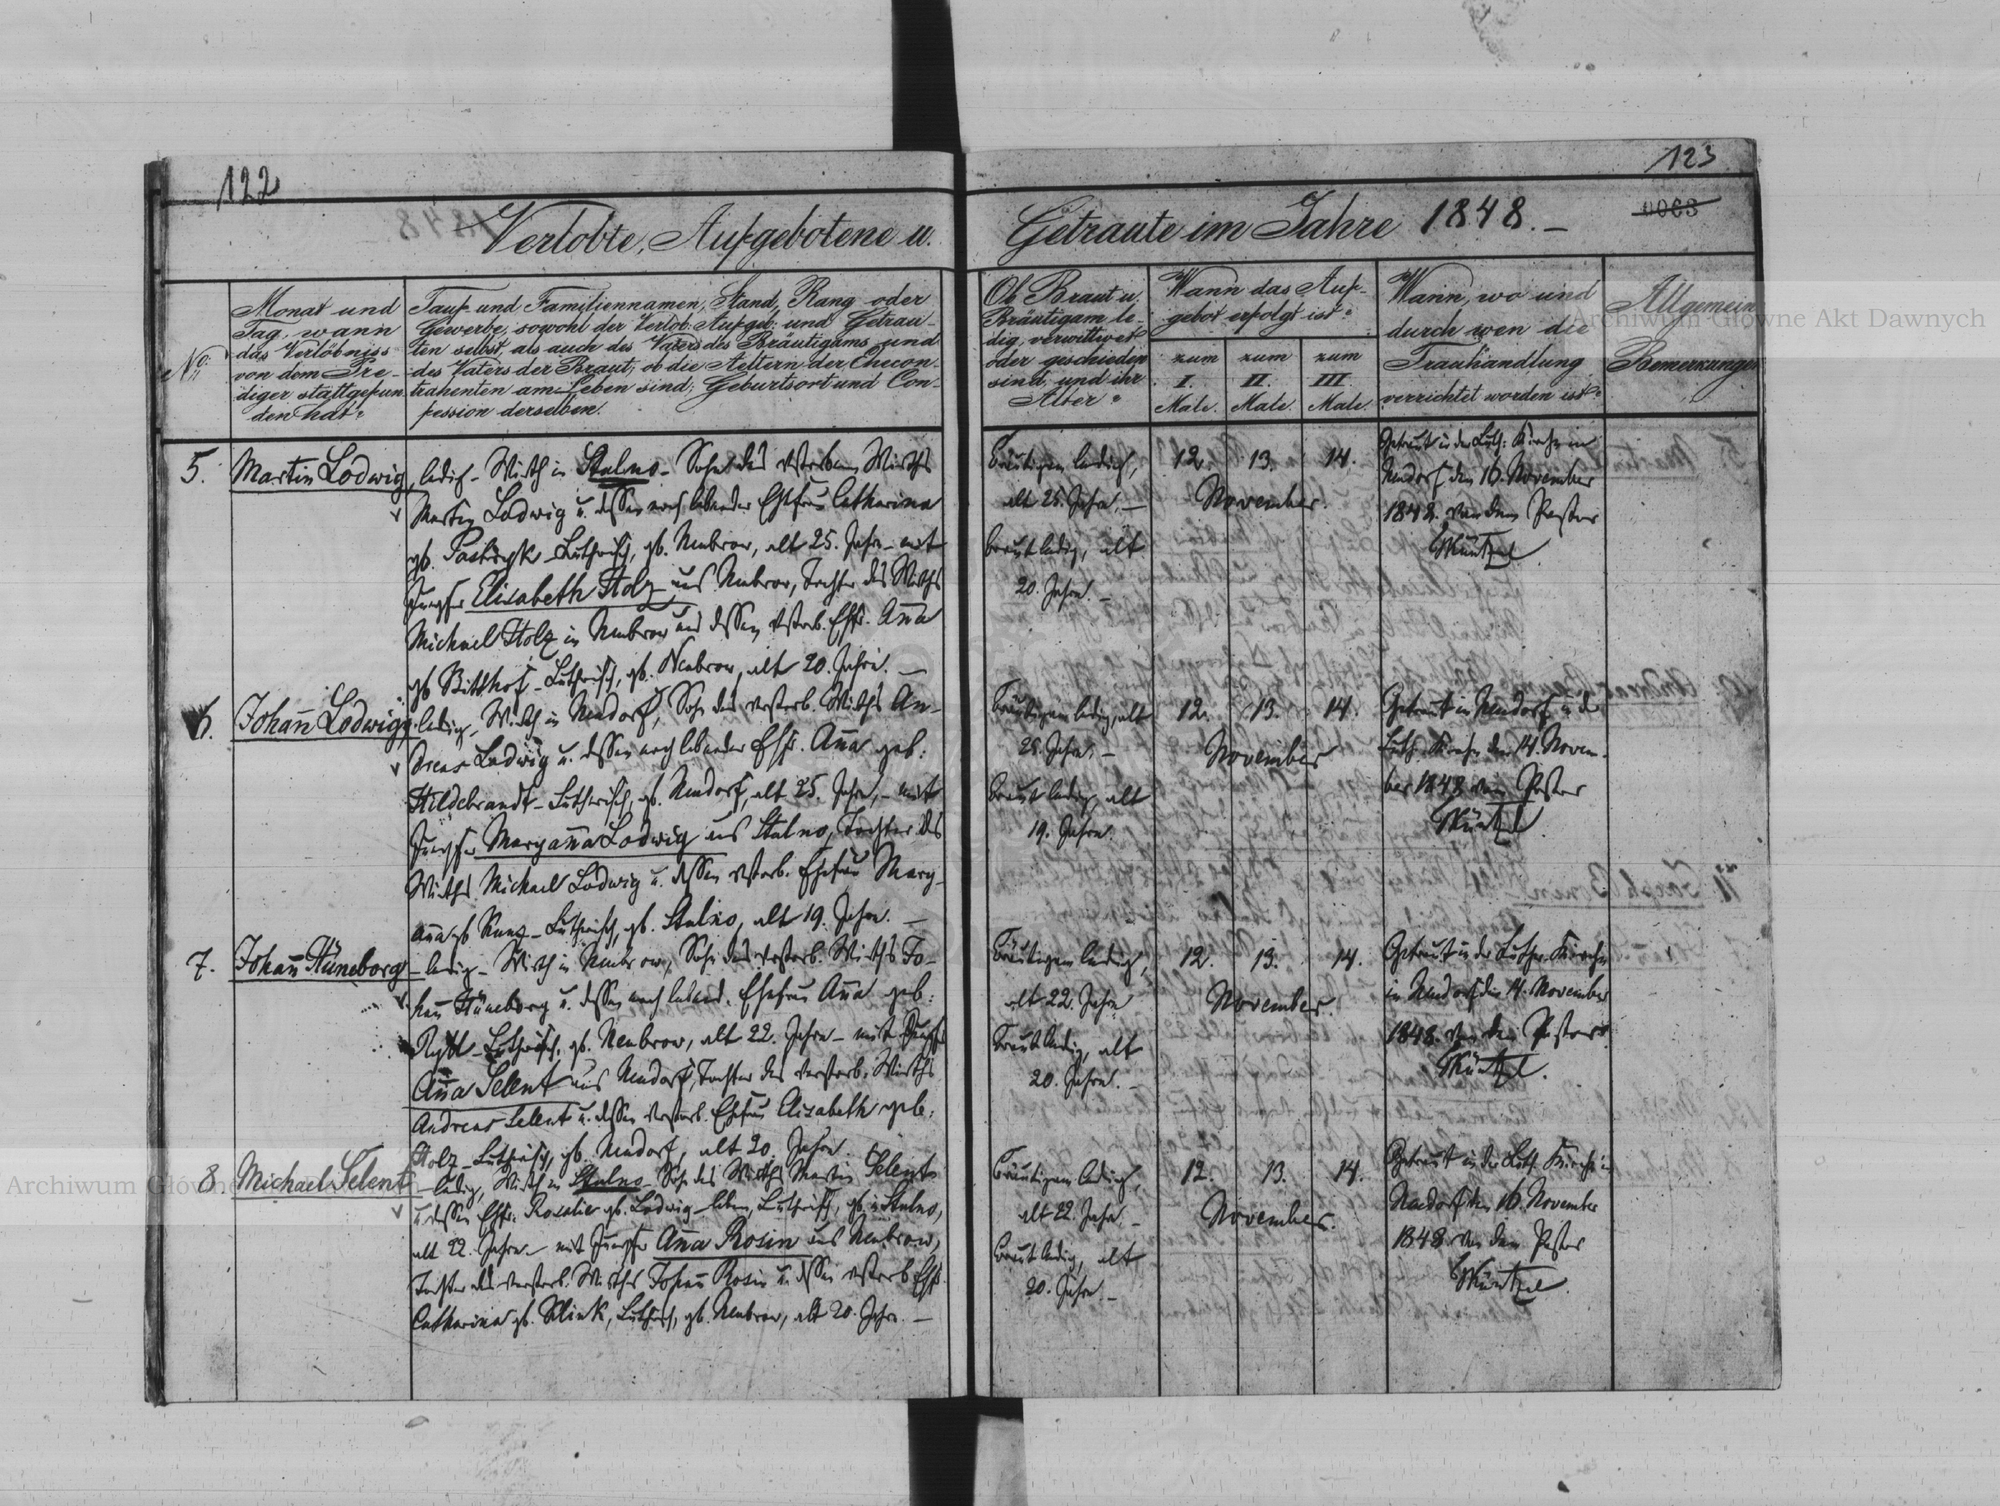 122
123
0063
Verlobte, Aufgebotene u.
Getraute im Jahre 1848. –
No:
Monat und
Tag, wann
das Verlöbniss
von dem Pre-
diger stattgefun
den hat?
Tauf- und Familiennamen, Stand, Rang oder
Gewerbe, sowohl der Verlob: Aufgeb: und Getrau-
ten selbst, als auch des Vaters des Bräutigams und
des Vaters der Braut; ob die Aeltern der Ehecon-
trahenten am Leben sind; Geburtsort und Con-
fession derselben.
Ob Braut u.
Bräutigam le-
dig, verwittwet
oder geschieden
sind, und ihr
Alter?
Wann das Auf-
gebot erfolgt ist?
zum
I.
Male.
zum
II.
Male.
zum
III.
Male.
Wann, wo und
durch wen die
Trauhandlung
verrichtet worden ist?
Allgemeine
Bemerkungen
5. Martin Lodwig, ledig – Wirth in Stalno – Sohn des verstorbenen Wirths
Martin Lodwig u. dessen noch lebender Ehefrau Catharina
gb. – Lutherisch, gb. Neubrow, alt 25. Jahre – mit
Jungfer Elisabeth Stolz aus Neubrow, Tochter des Wirths
Michael Stolz in Neubrow und dessen verstorb. Ehfr. Anna
gb – Lutherisch, gb. Neubrow, alt 20. Jahre. –
Bräutigam ledig,
alt 25. Jahre, –
Braut ledig, alt
20. Jahre. –
12. 13. 14.
November.
Getraut in der Luth: Kirche in
Neudorf den 16. November
1848. von dem Pastor
6. Johann Lodwig, ledig, Wirth in Neudorf, Sohn des verstorb. Wirths An-
dreas Lodwig u. dessen noch lebender Ehfr. Anna geb:
Hildebrandt – Lutherisch, gb. Neudorf, alt 25. Jahre, – mit
Jungfer Maryanna Lodwig aus Stalno, Tochter des
Wirths Michael Lodwig u. dessen verstorb. Ehefrau Mary-
anna gb. – Lutherisch, gb. Stalno, alt 19. Jahre. –
Bräutigam ledig, alt
25. Jahre, –
Braut ledig, alt
19. Jahre
12. 13. 14.
November
Getraut in Neudorf in der
Luth. Kirche den 14. Novem-
ber 1848 vom Pastor
7. Johann Hüneborg – ledig – Wirth in Neubrow, Sohn des verstorb. Wirths Jo-
hann Hüneborg u. dessen noch lebend. Ehefrau Anna geb:
– Lutherisch, gb. Neubrow, alt 22. Jahre – mit Jungfr
Anna Selent aus Neudorf, Tochter des verstorb. Wirths
Andreas Selent u. dessen verstorb. Ehefrau Elisabeth geb:
Stolz – Lutherisch, gb. Neudorf, alt 20. Jahre.
Bräutigam ledig,
alt 22. Jahre
Braut ledig, alt
20. Jahre. –
12. 13. 14.
November.
Getraut in der Luther. Kirche
in Neudorf den 14. November
1848. von dem Pastor
8. Michael Selent – ledig, Wirth in Stalno – Sohn des Wirths Martin Selent
u. dessen Ehfr. Rosalie gb. Lodwig – leben, Lutherisch, gb. in Stalno,
alt 22. Jahre – mit Jungfer Anna Rosin aus Neubrow,
Tochter des verstorb. Wirths Johann Rosin u. dessen verstorb. Ehfr.
Catharina gb. Klink, Luthersch, gb. Neubrow, alt 20. Jahre. –
Bräutigam ledig,
alt 22. Jahre. –
Braut ledig, alt
20. Jahre –
12. 13. 14.
November.
Getraut in der Luth. Kirche in
Neudorf den 16. November
1848 von dem Pastor
Archiwum Główne Akt Dawnych
Archiwum Główne